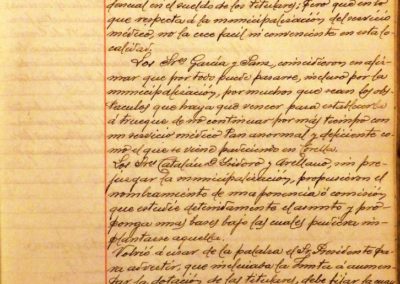 dencial en el sueldo de los titulares, pero que en lo
que respecta á la municipalización del servicio
médico, no la cree facil ni conveniente en esta lo
calidad.
Los Sres García y Sanz, coincidieron en afir
mar que por todo puede pasarse, incluso por la
municipalización, por muchos que sean los obs-
taculos que haya que vencer para establecerla
á trueque de no continuar por más tiempo con
un servicio médico tan anormal y deficiente co-
mo el que se viene padeciendo en
Los Sres Catalán D. Isidoro y Arellano, sin pre-
juzgar la municipalización, propusieron el
nombramiento de una ponencia ó comisión
que estudie detenidamente el asunto y pro-
ponga unas bases bajo las cuales pudiera im-
plantarse aquella.
Volvió á usar de la palabra el Sr. Presidente pa-
ra advertir, que inclinada la Junta á aumen-
tar la dotación de las titulares, debe fijar la cuan